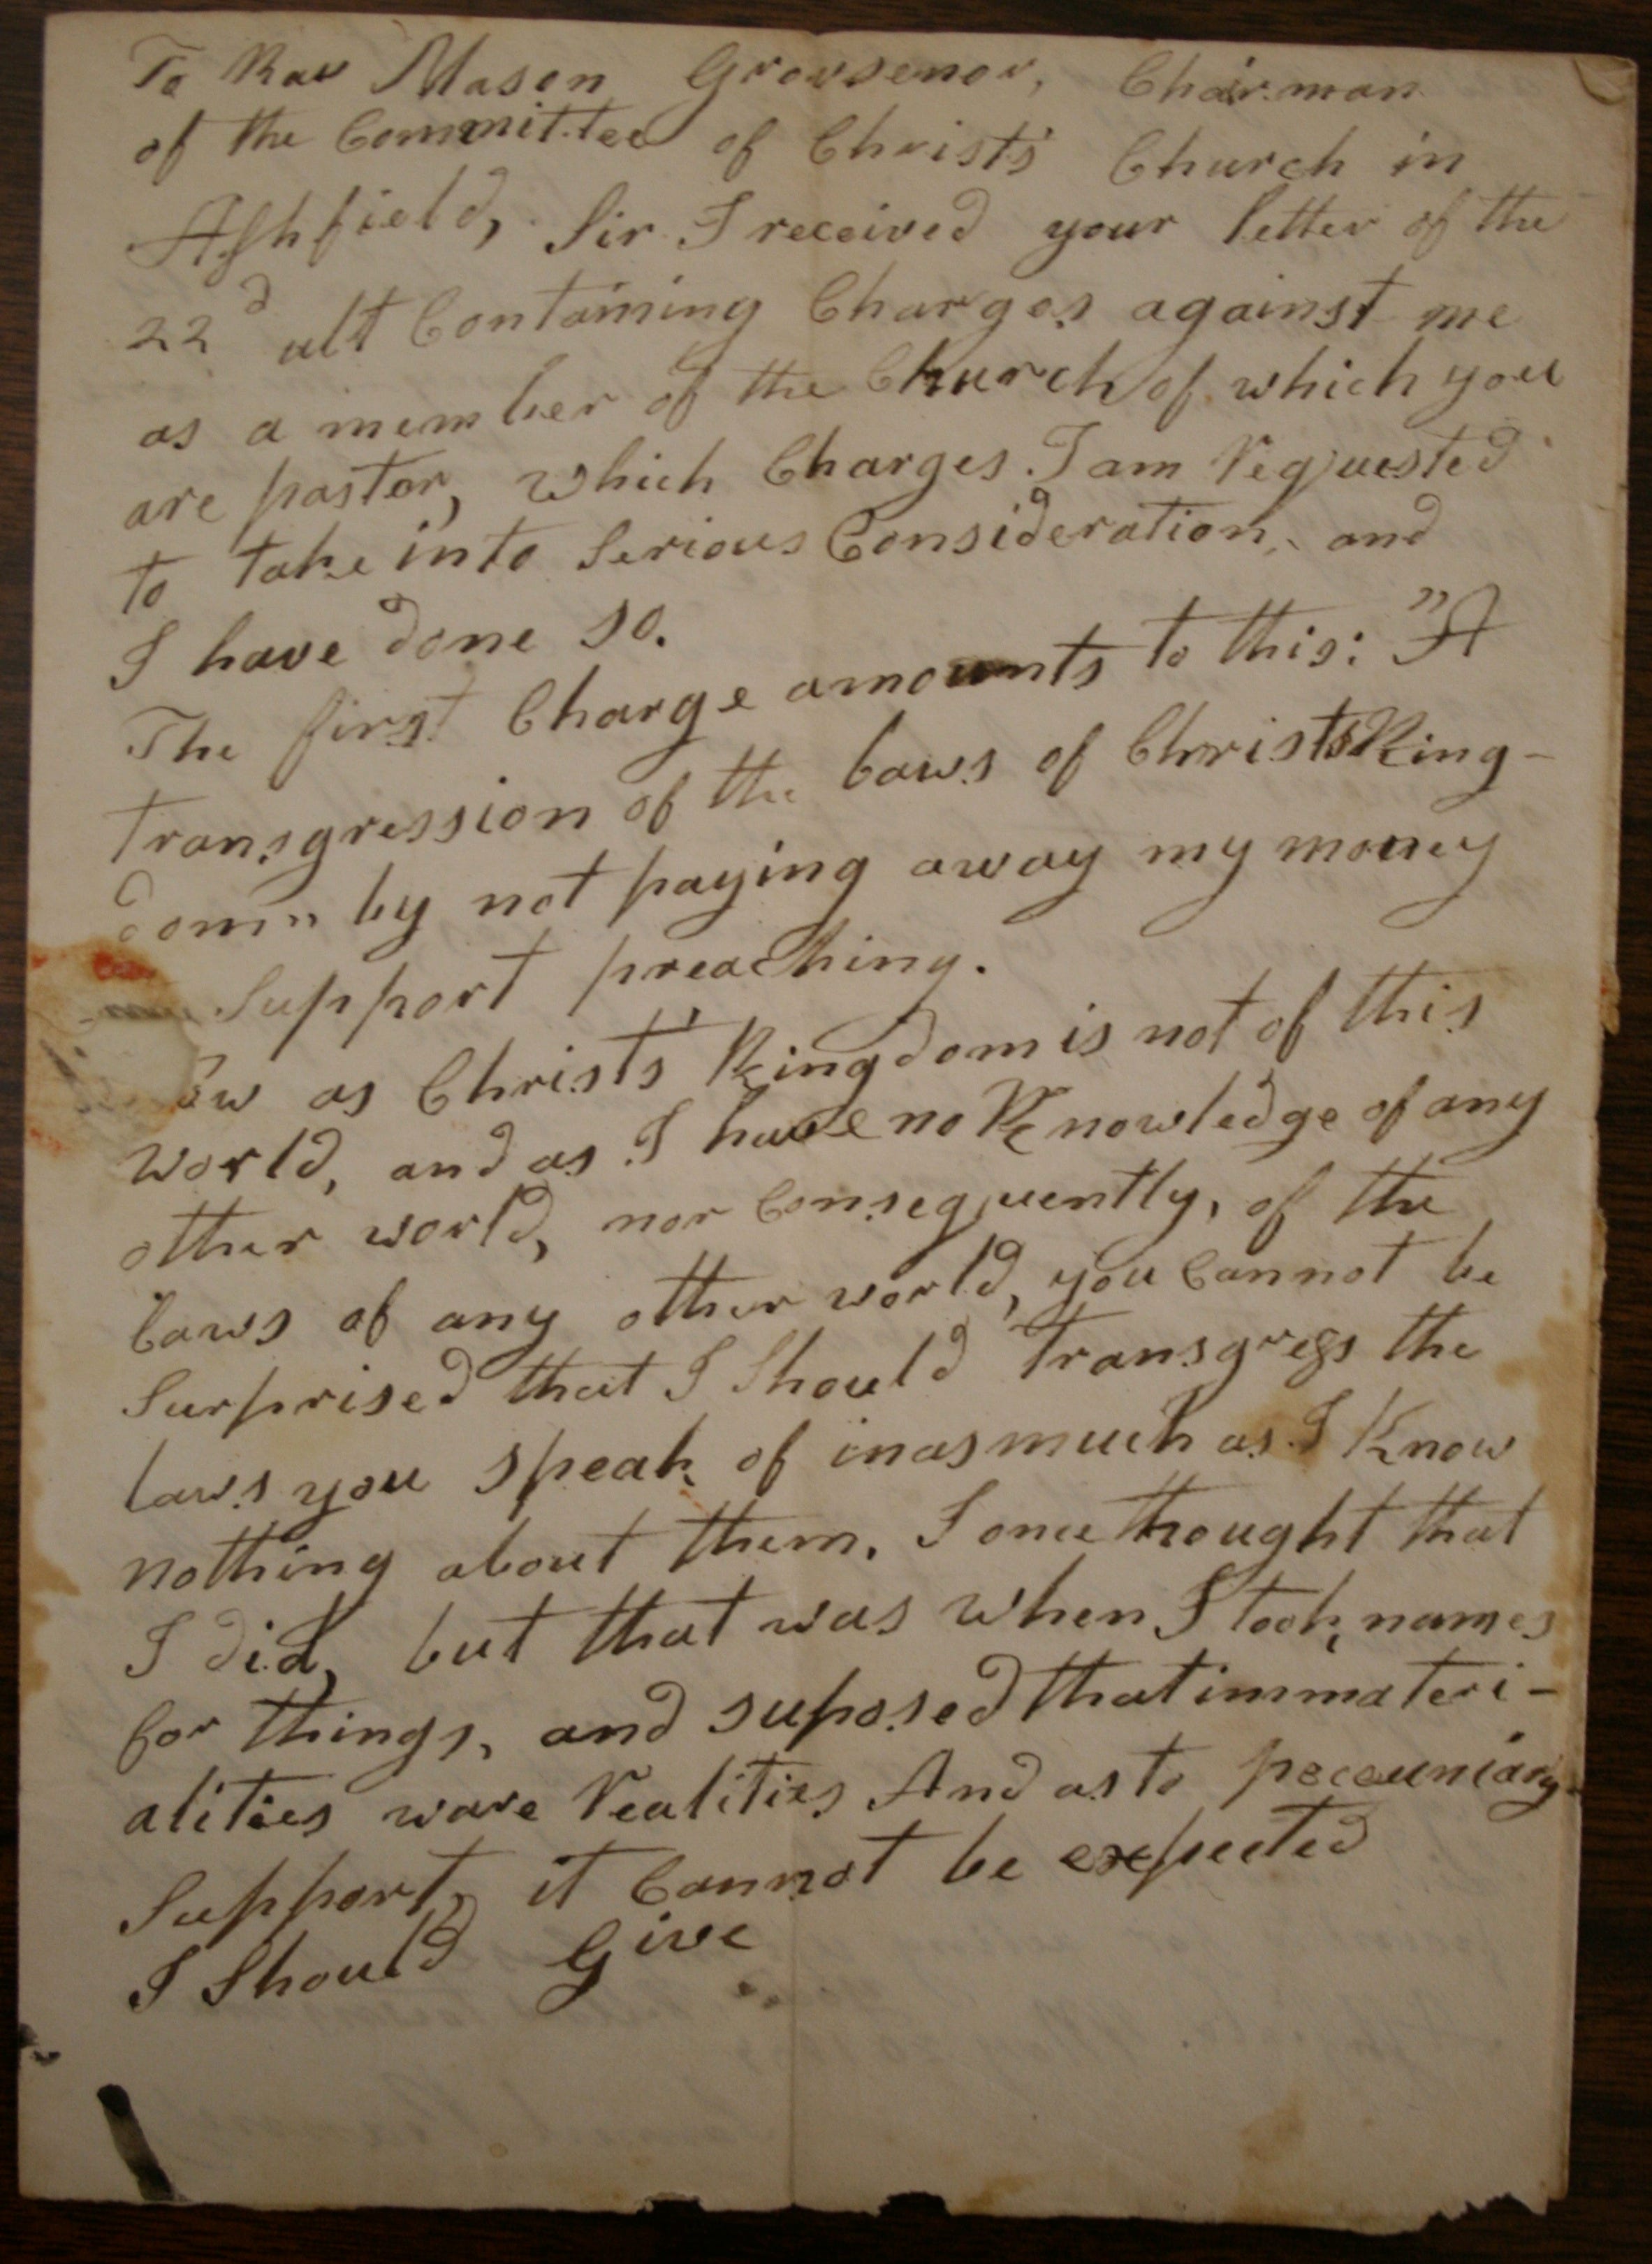 To Rav Mason Grovsenor, Chairman
of the Committee of Christs' Church in
Ashfield, Sir I received your letter of the
22d ult Containing Charges against me
as a member of the Church of which you
are pastor, which Charges I am Requested
to take into Serious Consideration, and
I have done so.
The first Charge amounts to this: "A
transgression of the laws of Christs King-
dom" by not paying away my money
Support preaching.
ow as Christs' Kingdom is not of this
world, and as I have no Knowledge of any
other world, nor Consequently, of the
laws of any other world, you Cannot be
Surprised that I Should Transgress the
laws you speak of inasmuch as I Know
nothing about them. I once thought that
I did, but that was when I took names
for things, and suposed that immateri-
alities ware Realities And as to peceuniary
Support, it Cannot be expected
I Should Give